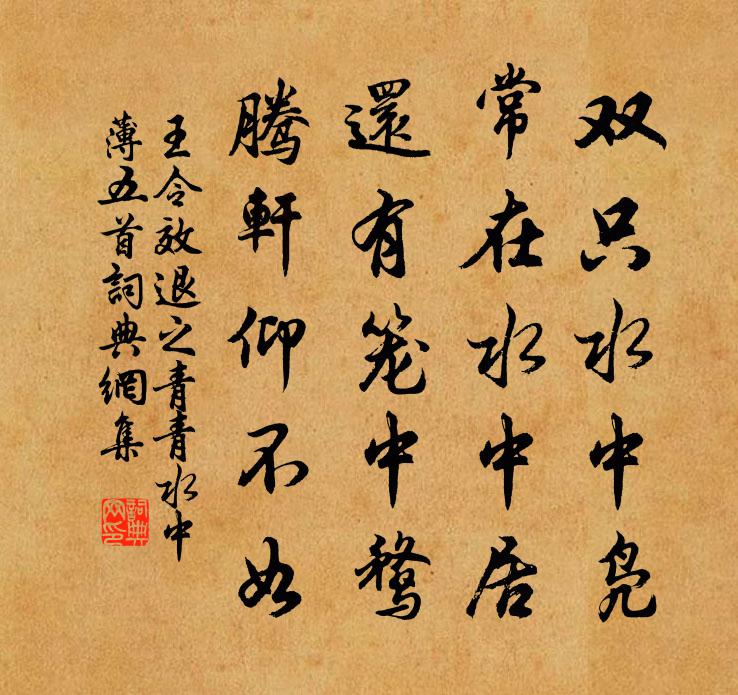 双只水中凫
常在水中居
還有笼中鹜
腾軒仰不如
王令效退之青青水中
薄五首詞典網集
詞典网印